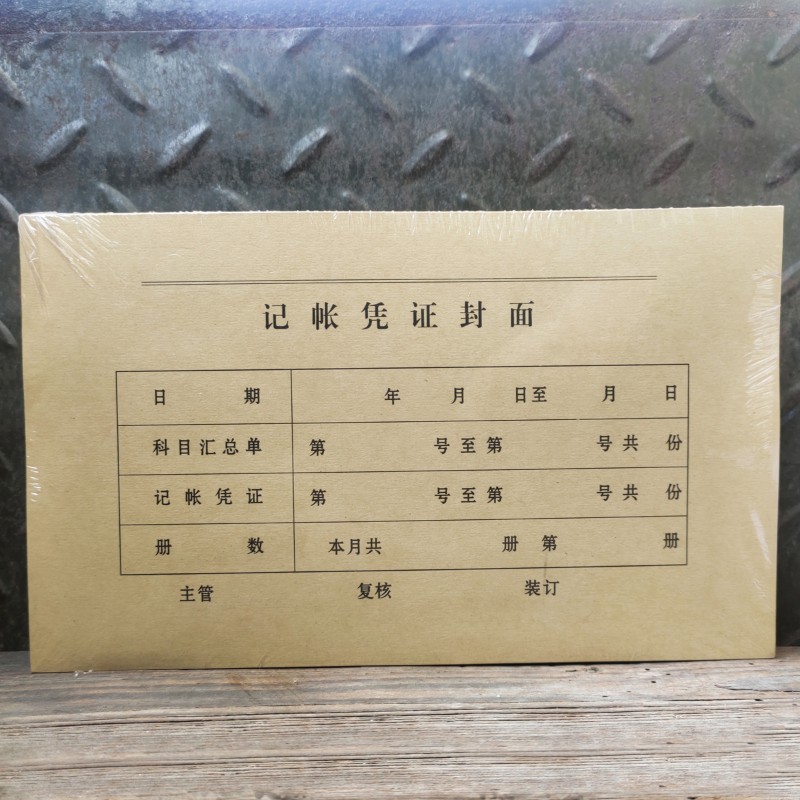 记帐凭证封面
日期 年 月 日至 月 日
科目汇总单 第 号至第 号共 份
记帐凭证 第 号至第 号共 份
册数 本月共 册 第 册
主管 复核 装订